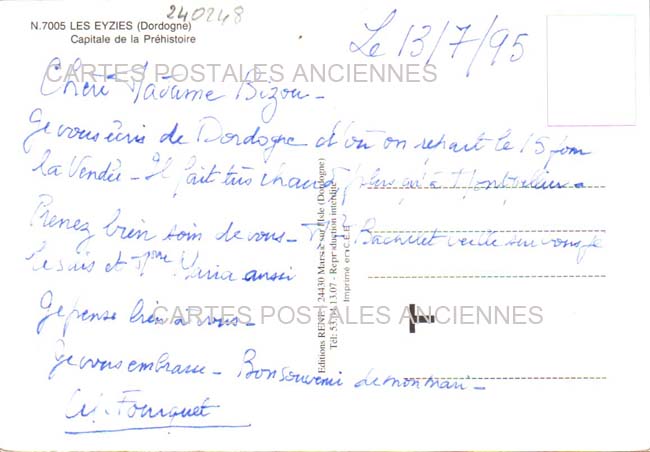 240248
N.7005 LES EYZIES (Dordogne)
Capitale de la Préhistoire
Le 13/7/95
CARTES POSTALES ANCIENNES
Chère Madame Bizou -
Je vous écris de Dordogne d'où on repart le 15 pour
la Vendée - Il fait très chaud plus qu'à
Prenez bien soin de vous - Bachuet veille sur vous je
le sais et Mme Maria aussi
Je pense bien à vous -
CARTES POSTALES ANCIENNES
Je vous embrasse - Bon souvenir de mon mari -
Fourquet
Editions RENE 24430 Marsac sur l'Isle (Dordogne)
Tél: 53.04.13.07 - Reproduction interdite
Imprimé en C.E.E.